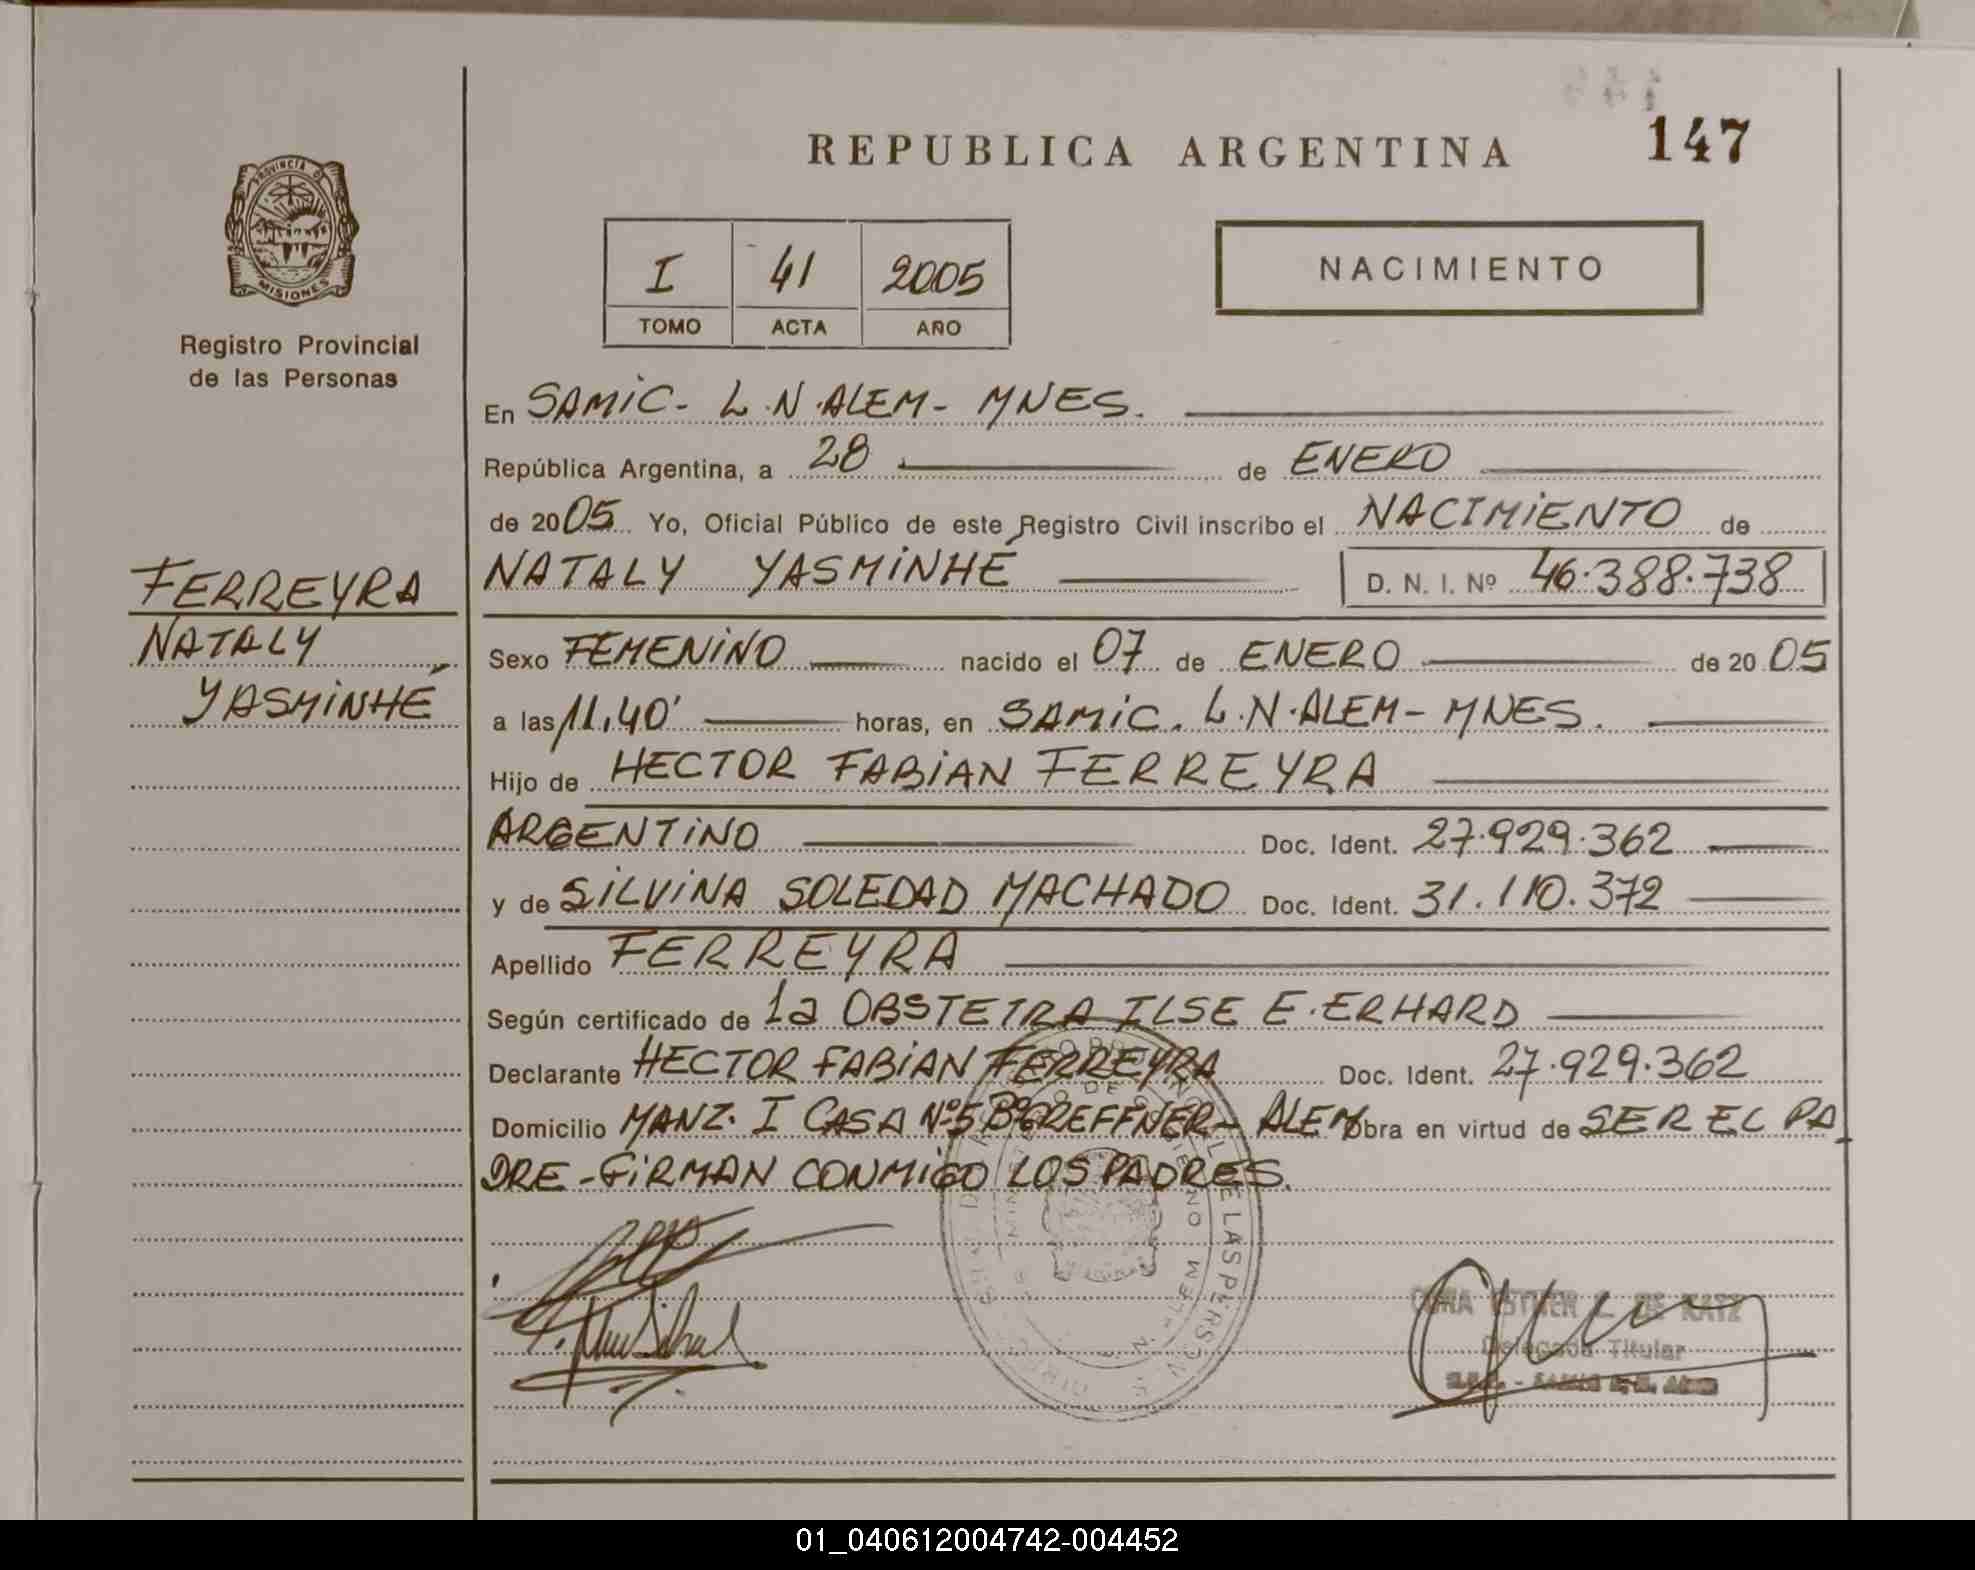 147
REPUBLICA ARGENTINA
PROVINCIA DE
MISIONES
Registro Provincial
de las Personas
I 41 2005
TOMO ACTA AÑO
NACIMIENTO
En SAMIC - L.N.ALEM - MNES.
República Argentina, a 28 de ENERO
de 2005 Yo, Oficial Público de este Registro Civil inscribo el NACIMIENTO de
NATALY YASMINHÉ D. N. I. Nº 46.388.738
FERREYRA
NATALY
YASMINHÉ
Sexo FEMENINO nacido el 07 de ENERO de 2005
a las 11,40' horas, en SAMIC. L.N.ALEM - MNES.
Hijo de HECTOR FABIAN FERREYRA
ARGENTINO Doc. Ident. 27.929.362
y de SILVINA SOLEDAD MACHADO Doc. Ident. 31.110.372
Apellido FERREYRA
Según certificado de la OBSTETRA ILSE E. ERHARD
Declarante HECTOR FABIAN FERREYRA Doc. Ident. 27.929.362
Domicilio MANZ. I CASA Nº5 Bº GREFFNER - ALEM Obra en virtud de SER EL PA
DRE - FIRMAN CONMIGO LOS PADRES.
ESTHER DE KATZ
Delegada Titular
01_040612004742-004452